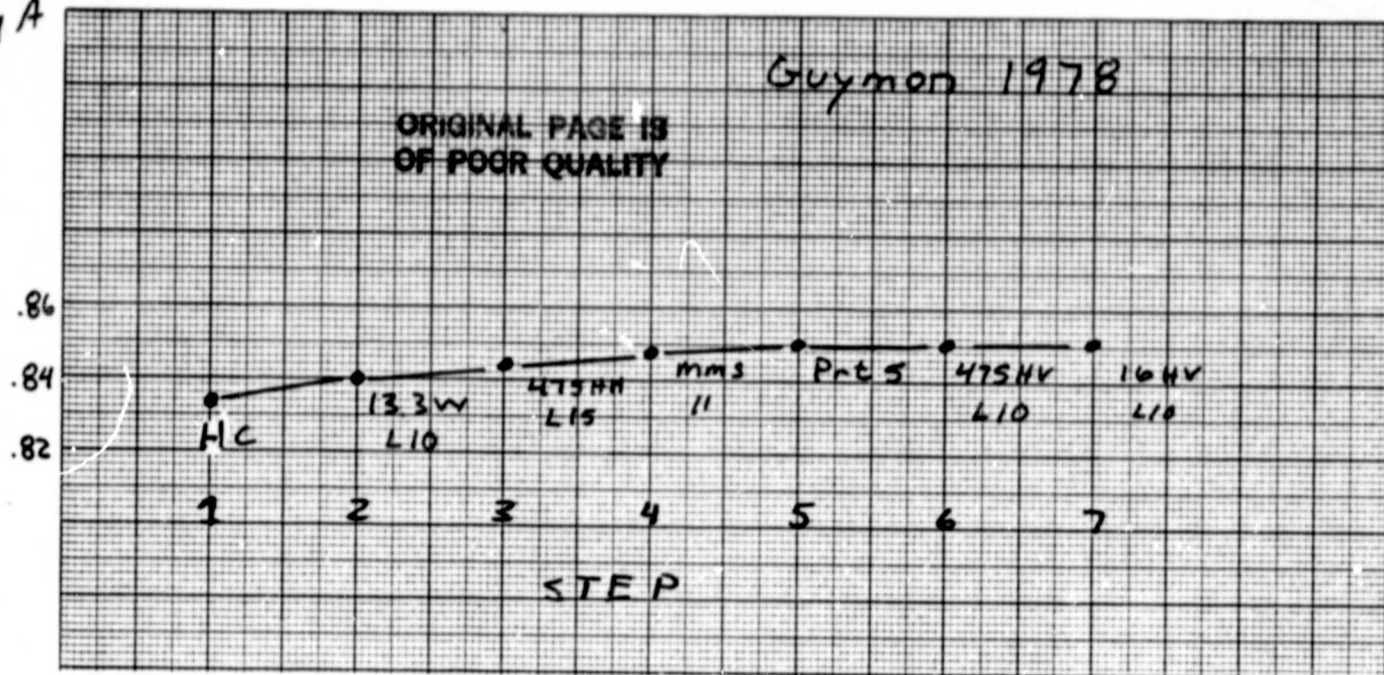 A
Guymon 1978
ORIGINAL PAGE IS
OF POOR QUALITY
.86
.84
.82
HC
13.3W
L10
475HH
L15
mms
11
Prt 5
475HV
L10
16HV
L10
1 2 3 4 5 6 7
STEP